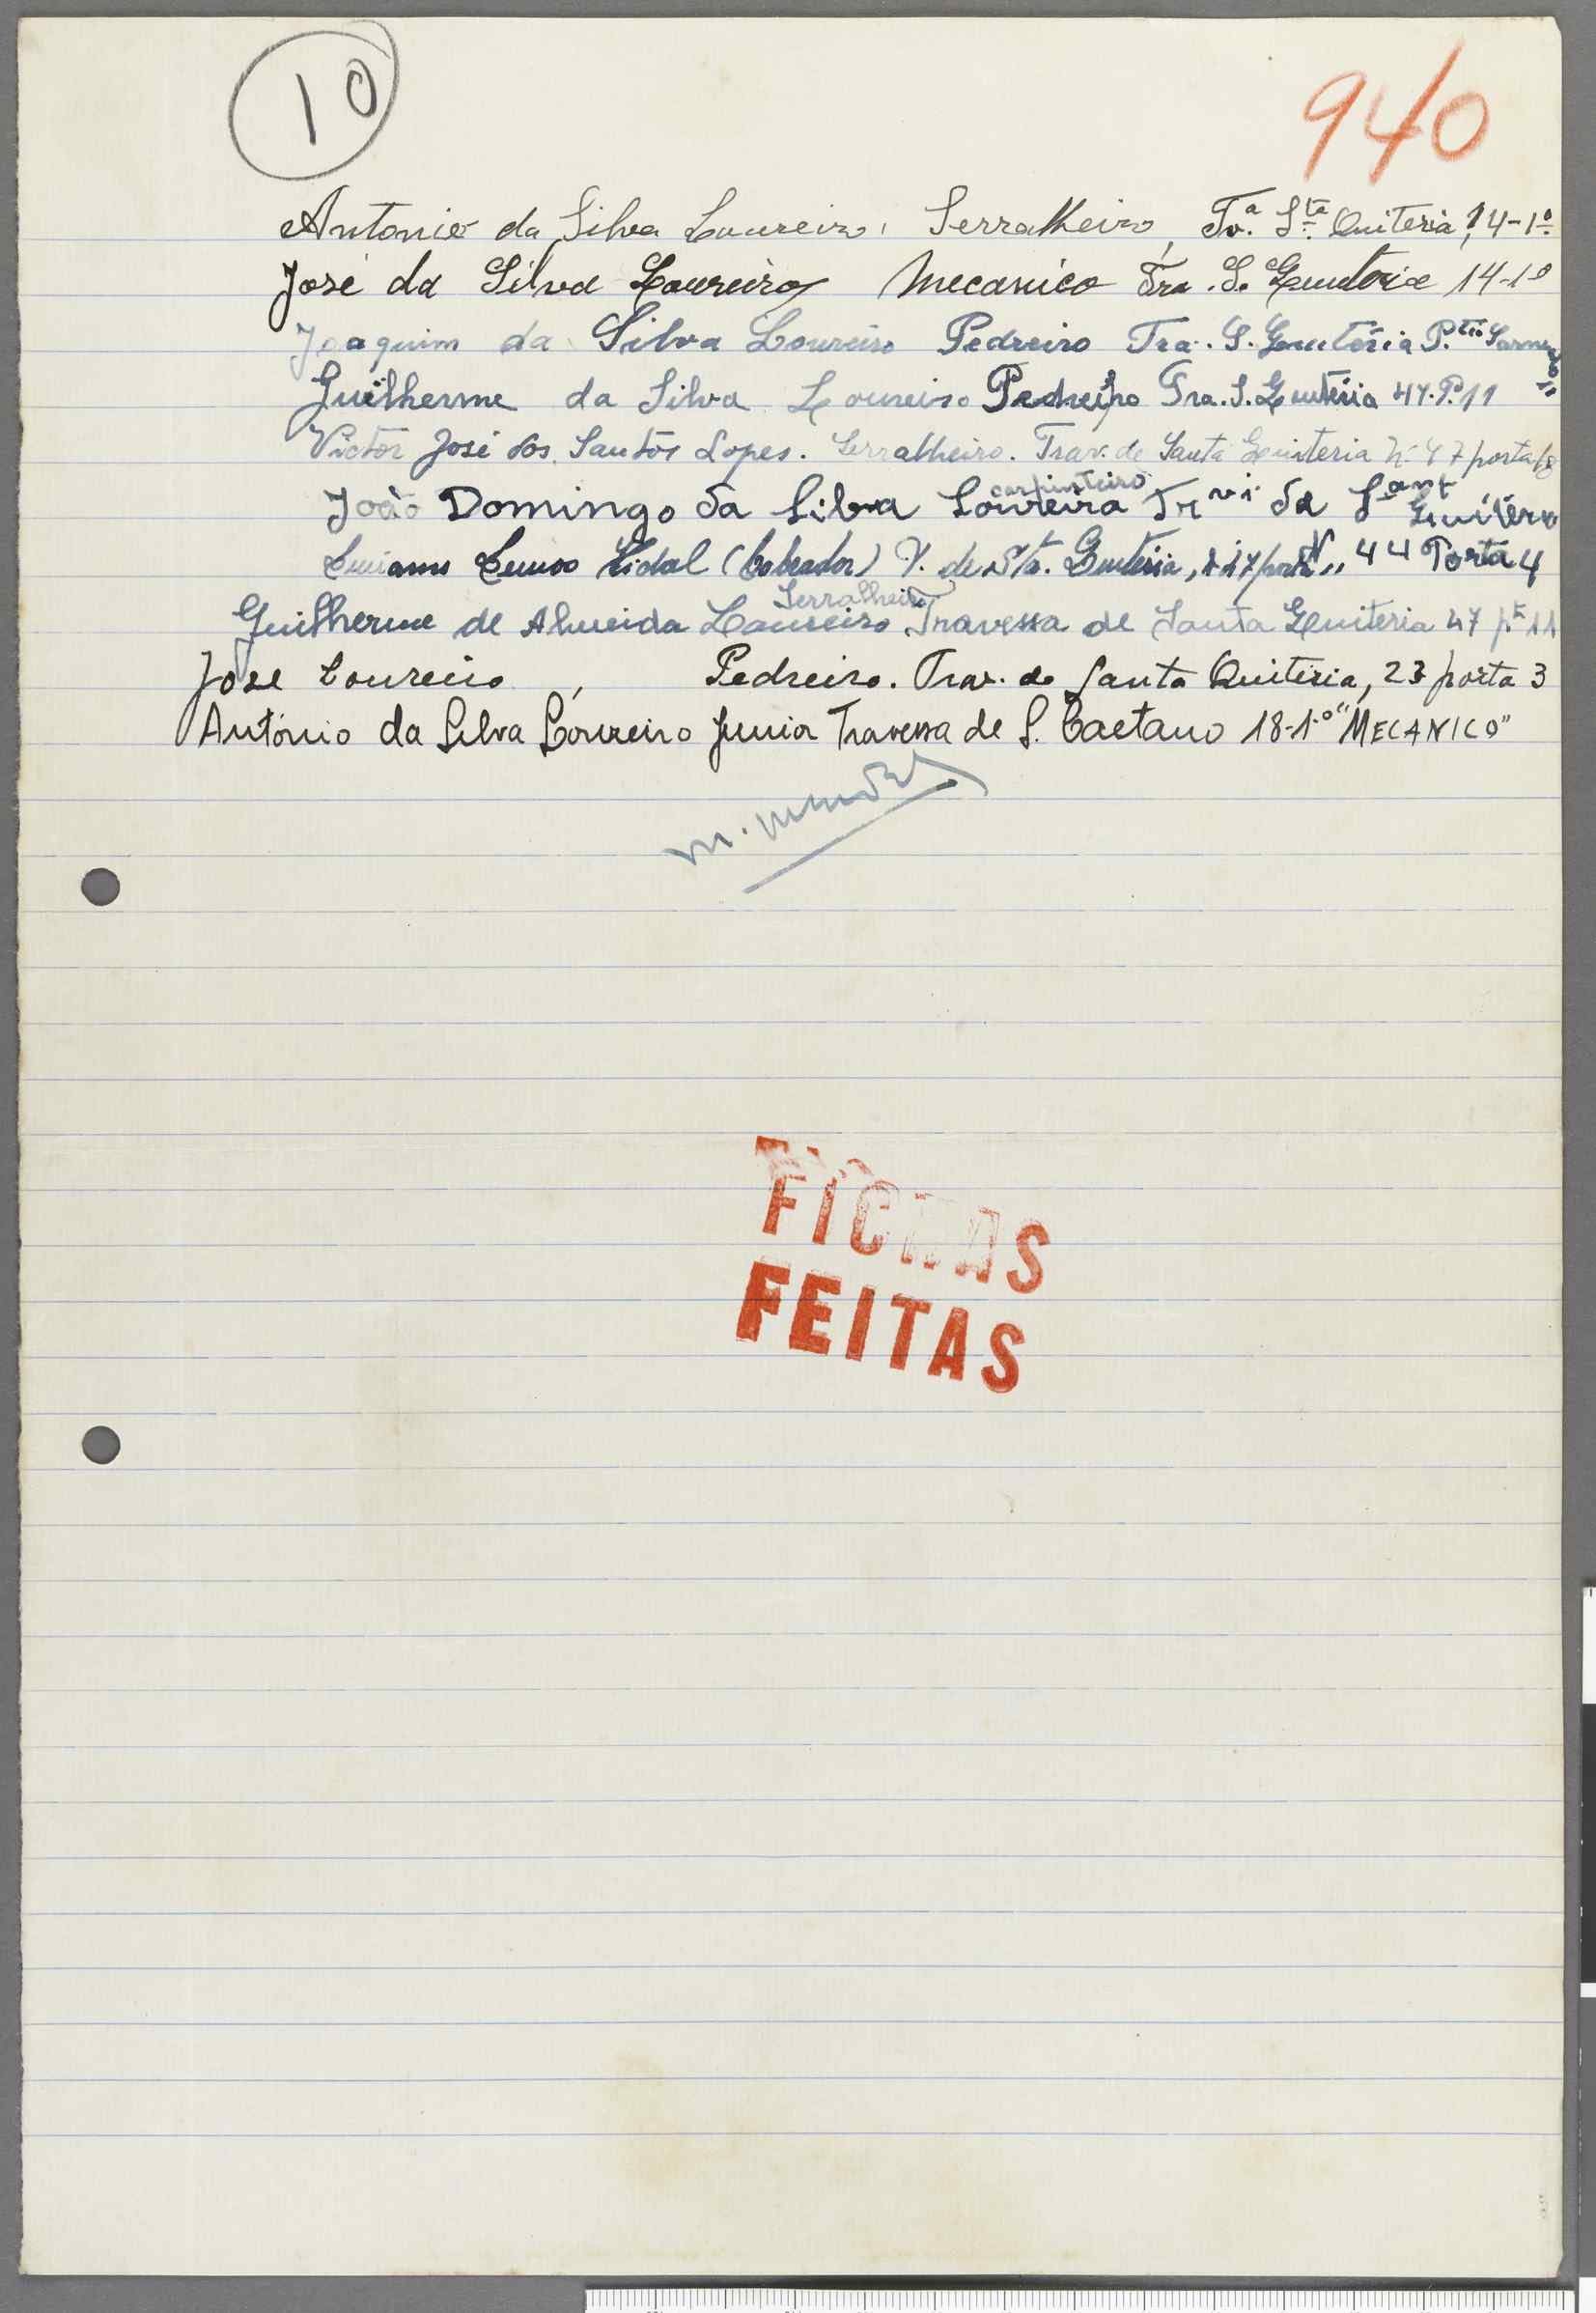 10
940
Antonio da Silva Loureiro, Serralheiro, Tv.ª S.ta Quiteria, 14-1º
José da Silva Loureiro Mecanico Tra. S. Quiteria 14-1º
Joaquim da Silva Loureiro Pedreiro Tra. S. Quitéria P.tio
Guilherme da Silva Loureiro Pedreiro Tra. S. Quitéria 47. P. 11
Victor José dos Santos Lopes. Serralheiro. Trav. de Santa Quiteria Nº 47 porta
carpinteiro
João Domingo da Silva Loureira Trvi da Sant
Lemos Vidal (Cobrador) T. de Sta. Quitéria, 44 Porta 4
Serralheiro
Guilherme de Almeida Loureiro Travessa de Santa Quiteria 47 pta 11
José Loureiro, Pedreiro. Trav. de Santa Quiteria, 23 porta 3
António da Silva Loureiro Junior Travessa de S. Caetano 18-1.º "MECANICO"
M. Mendes
FICHAS
FEITAS